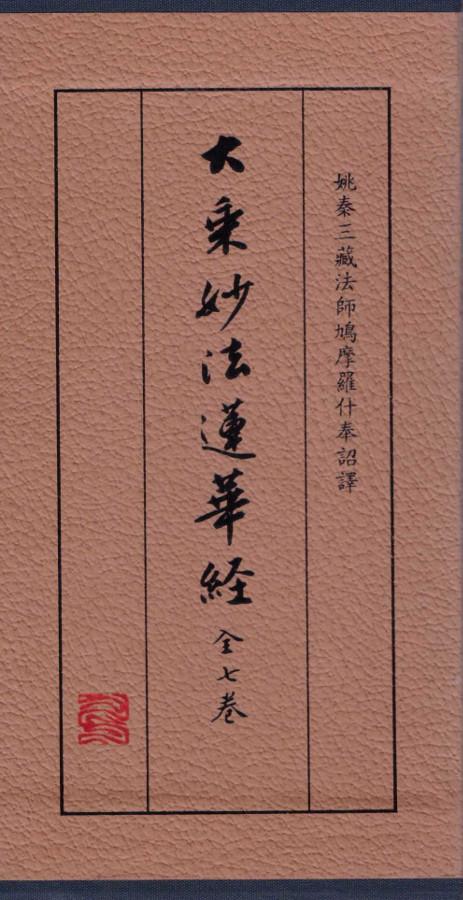 姚秦三藏法師鳩摩羅什奉詔譯
大乘妙法蓮華経
全七卷